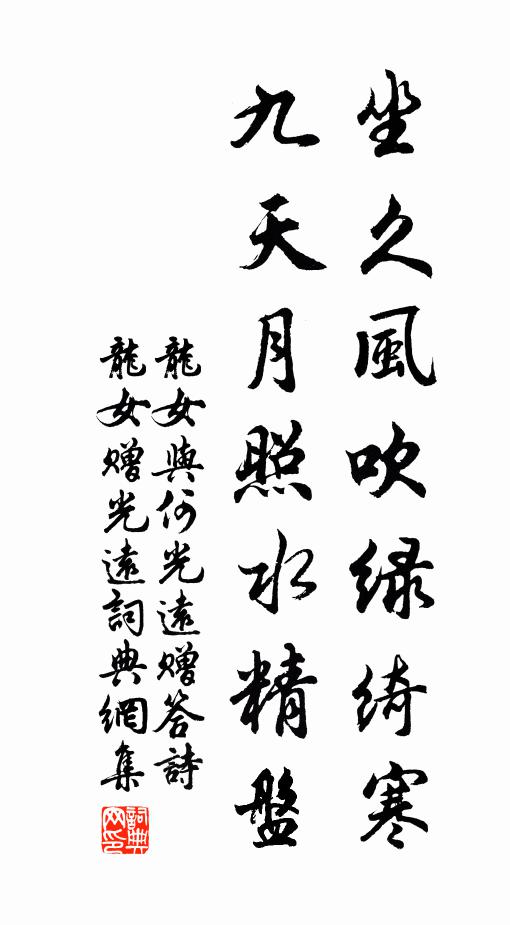 坐久風吹綠綺寒
九天月照水精盤
龍女與何光遠贈答詩
龍女贈光遠詞典網集
詞典網印